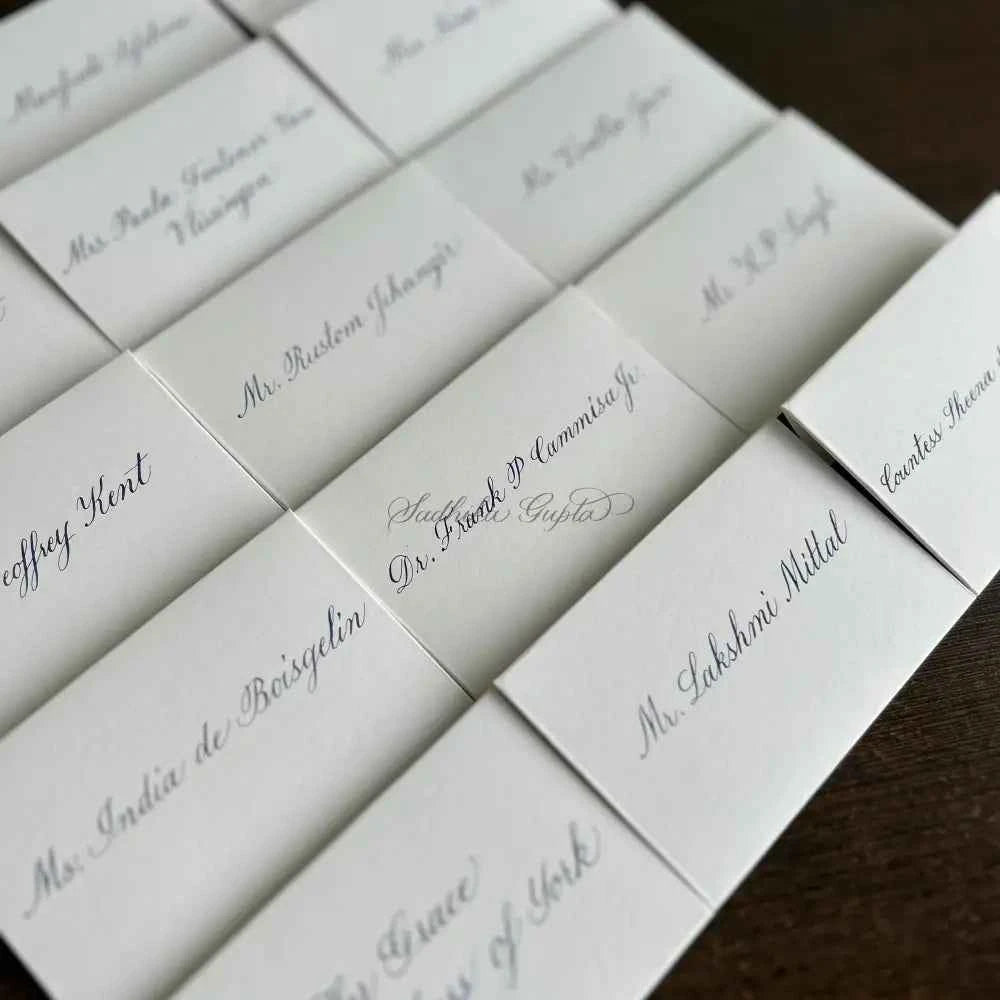 Mrs Paula Fentener Van
Vlissingen
Mr. Rustom Jehangir
Mr K P Singh
eoffrey Kent
Dr. Frank P Cammisa Jr.
Sadhna Gupta
Countess Sheena
Ms. India de Boisgelin
Mr. Lakshmi Mittal
Grace
of York